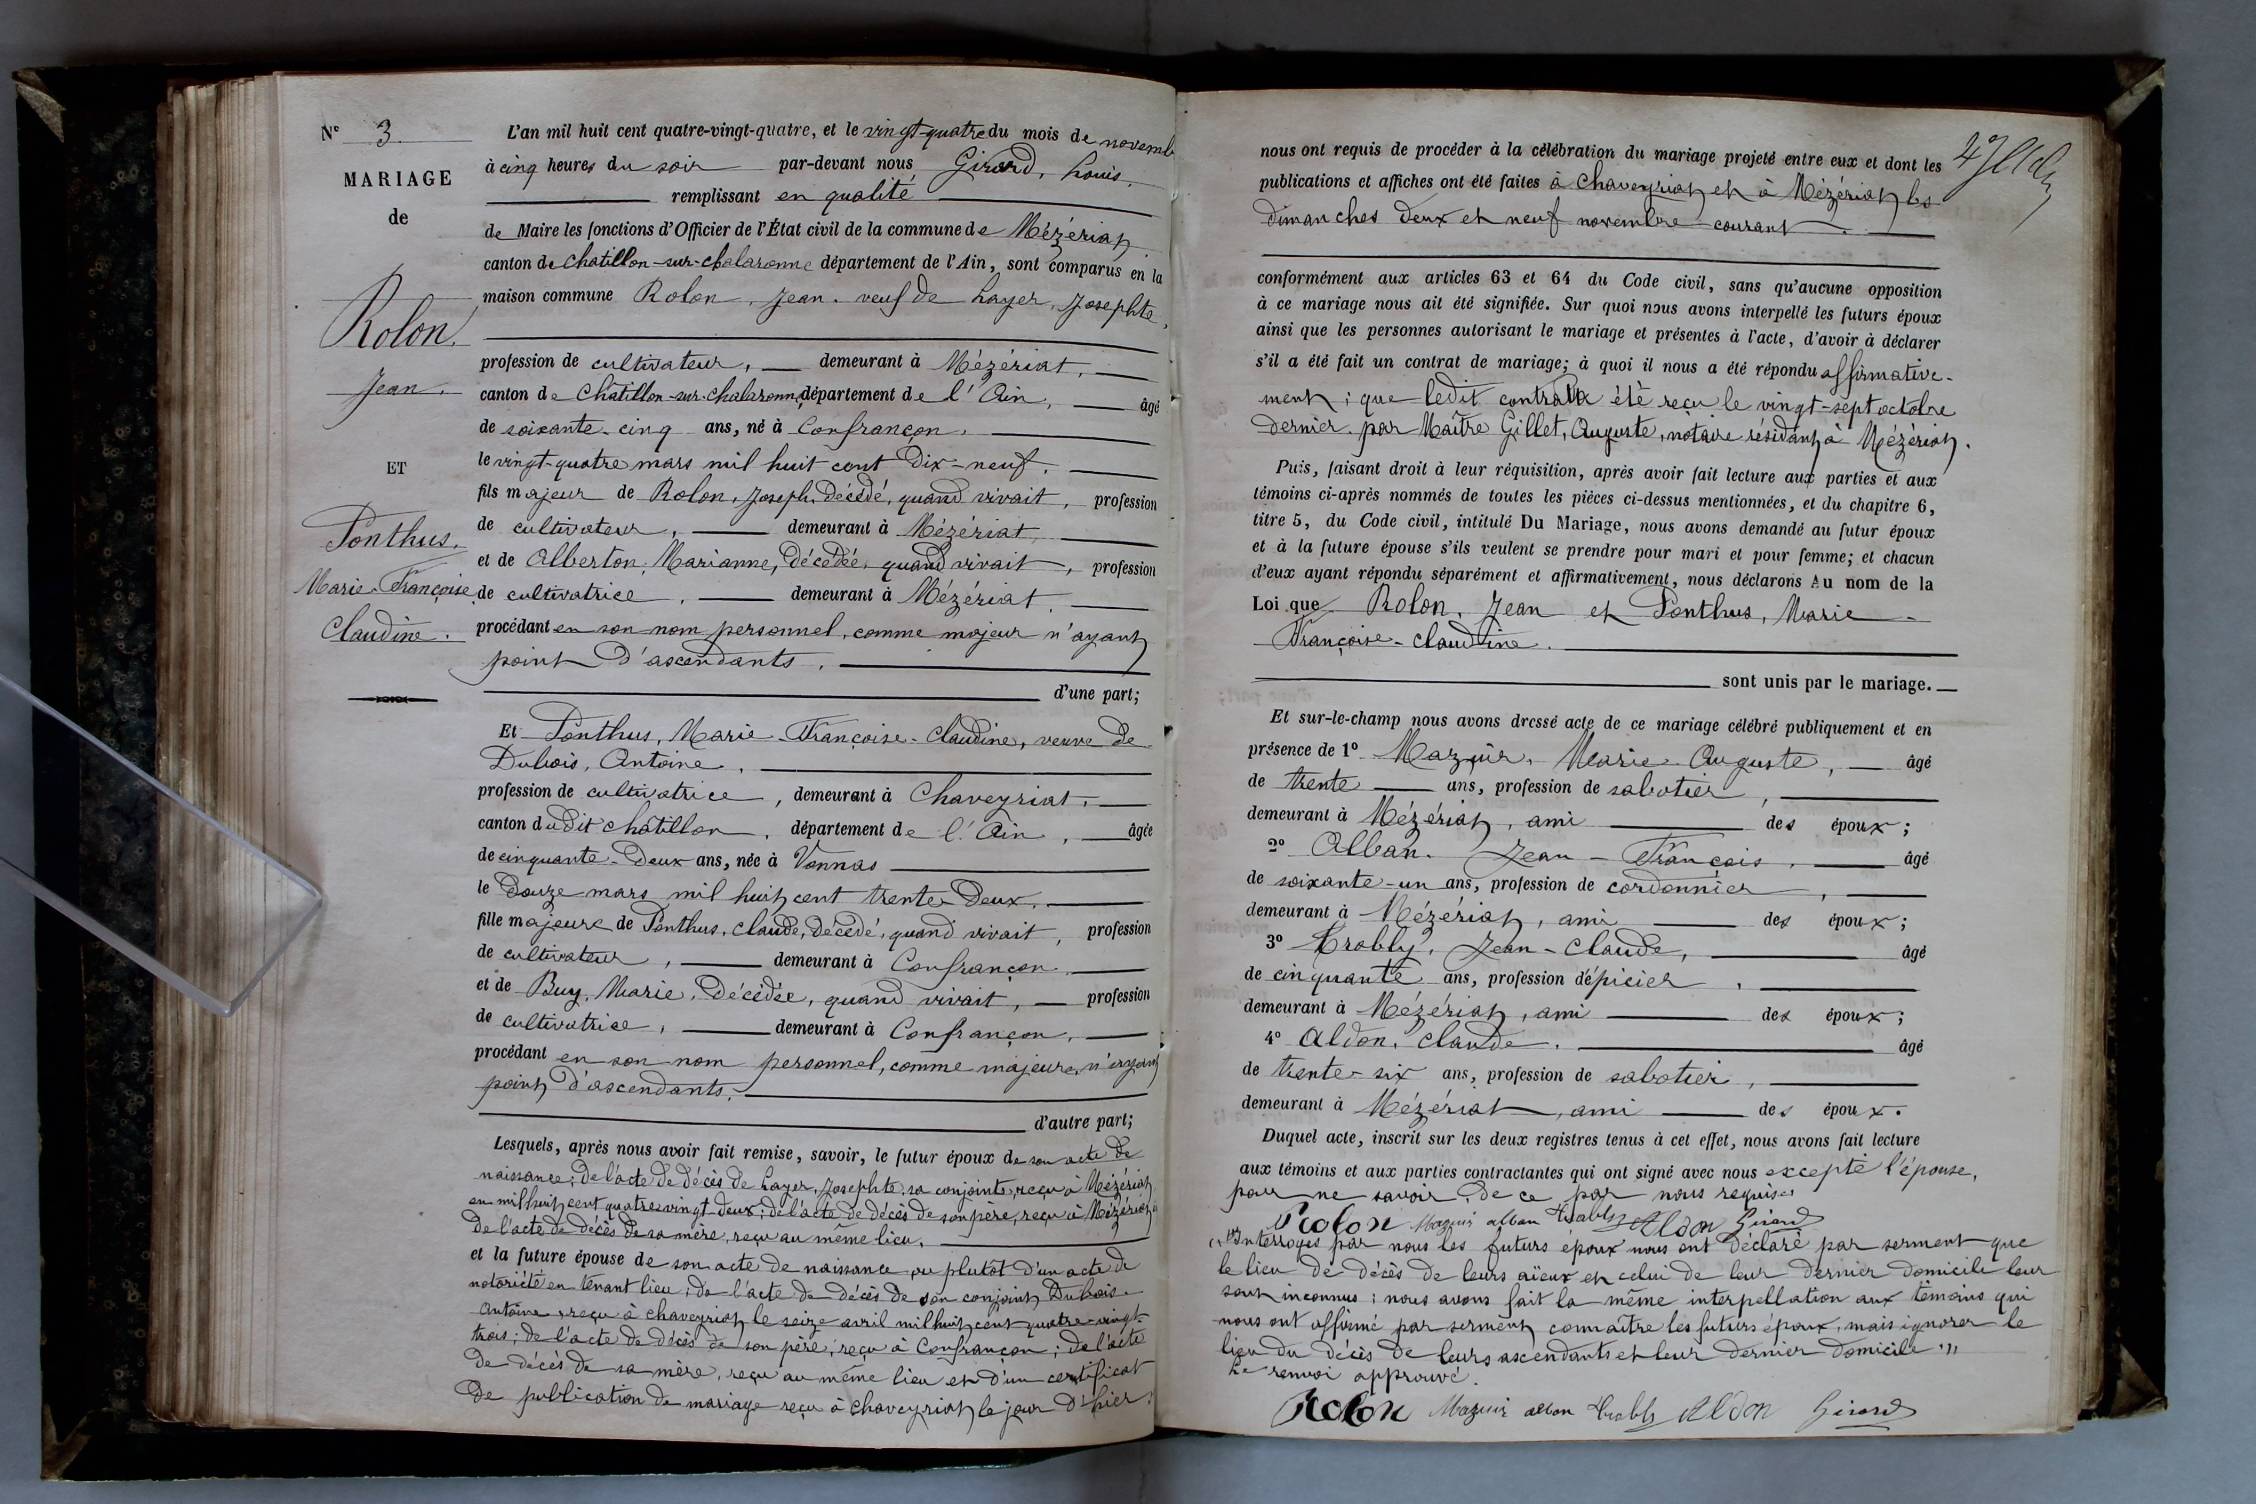 N° 3
MARIAGE
de
Rolon,
Jean.
ET
Ponthus,
Marie-Françoise
Claudine.
L'an mil huit cent quatre-vingt-quatre, et le vingt-quatre du mois de novemb
à cinq heures du soir par-devant nous Girard, Louis,
remplissant en qualité
de Maire les fonctions d'Officier de l'État civil de la commune de Mézériat
canton de Chatillon-sur-chalaronne département de l'Ain, sont comparus en la
maison commune Rolon, Jean, veuf de Layer, Josephte,
profession de cultivateur, demeurant à Mézériat,
canton de Chatillon-sur-chalaronne, département de l'Ain, âgé
de soixante-cinq ans, né à Confrançon,
le vingt-quatre mars mil huit cent dix-neuf,
fils majeur de Rolon, Joseph, décédé, quand vivait, profession
de cultivateur, demeurant à Mézériat,
et de Alberton, Marianne, décédée, quand vivait, profession
de cultivatrice, demeurant à Mézériat,
procédant en son nom personnel, comme majeur n'ayant
point d'ascendants,
d'une part;
Et Ponthus, Marie-Françoise-Claudine, veuve de
Dubois, Antoine,
profession de cultivatrice, demeurant à Chaveyriat,
canton dudit châtillon, département de l'Ain, âgée
de cinquante-deux ans, née à Vonnas
le douze mars mil huit cent trente-deux,
fille majeure de Ponthus, Claude, décédé, quand vivait, profession
de cultivateur, demeurant à Confrançon,
et de Buy, Marie, décédée, quand vivait, profession
de cultivatrice, demeurant à Confrançon,
procédant en son nom personnel, comme majeure, n'ayant
point d'ascendants,
d'autre part;
Lesquels, après nous avoir fait remise, savoir, le futur époux de son acte de
naissance; de l'acte de décès de Layer, Josephte, sa conjointe, reçu à Mézériat
en mil huit cent quatre vingt-deux; de l'acte de décès de son père, reçu à Mézériat
de l'acte de décès de sa mère, reçu au même lieu,
et la future épouse de son acte de naissance ou plutôt d'un acte de
notoriété en tenant lieu; de l'acte de décès de son conjoint Dubois
Antoine, reçu à chaveyriat le seize avril mil huit cent quatre-vingt-
trois; de l'acte de décès de son père, reçu à Confrançon; de l'acte
de décès de sa mère, reçu au même lieu et d'un certificat
de publication de mariage reçu à chaveyriat le jour d'hier;
nous ont requis de procéder à la célébration du mariage projeté entre eux et dont les
publications et affiches ont été faites à Chaveyriat et à Mézériat les
dimanches deux et neuf novembre courant.
conformément aux articles 63 et 64 du Code civil, sans qu'aucune opposition
à ce mariage nous ait été signifiée. Sur quoi nous avons interpellé les futurs époux
ainsi que les personnes autorisant le mariage et présentes à l'acte, d'avoir à déclarer
s'il a été fait un contrat de mariage; à quoi il nous a été répondu affirmative-
ment; que ledit contrat a été reçu le vingt-sept octobre
dernier par Maître Gillet, Auguste, notaire résidant à Mézériat.
Puis, faisant droit à leur réquisition, après avoir fait lecture aux parties et aux
témoins ci-après nommés de toutes les pièces ci-dessus mentionnées, et du chapitre 6,
titre 5, du Code civil, intitulé Du Mariage, nous avons demandé au futur époux
et à la future épouse s'ils veulent se prendre pour mari et pour femme; et chacun
d'eux ayant répondu séparément et affirmativement, nous déclarons Au nom de la
Loi que Rolon, Jean et Ponthus, Marie-
Françoise-Claudine.
sont unis par le mariage.
Et sur-le-champ nous avons dressé acte de ce mariage célébré publiquement et en
présence de 1° Mazuir, Marie-Auguste, âgé
de trente ans, profession de sabotier,
demeurant à Mézériat, ami des époux;
2° Alban, Jean-François, âgé
de soixante-un ans, profession de cordonnier,
demeurant à Mézériat, ami des époux;
3° Trably, Jean-Claude, âgé
de cinquante ans, profession d'épicier,
demeurant à Mézériat, ami des époux;
4° Aldon, Claude, âgé
de trente-six ans, profession de sabotier,
demeurant à Mézériat, ami des époux.
Duquel acte, inscrit sur les deux registres tenus à cet effet, nous avons fait lecture
aux témoins et aux parties contractantes qui ont signé avec nous excepté l'épouse,
pour ne savoir, de ce par nous requise
Rolon Mazuir alban Trably Aldon Girard
Interrogés par nous les futurs époux nous ont déclaré par serment que
le lieu de décès de leurs aïeux et celui de leur dernier domicile leur
sont inconnus; nous avons fait la même interpellation aux témoins qui
nous ont affirmé par serment connaître les futurs époux, mais ignorer le
lieu du décès de leurs ascendants et leur dernier domicile "
Le renvoi approuvé.
Rolon Mazuir alban Trably Aldon Girard